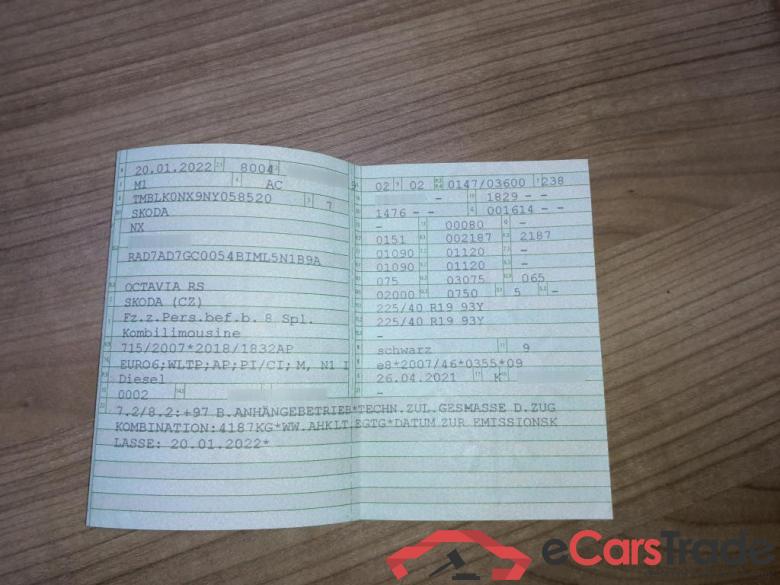 20.01.2022 8004
M1 AC
TMBLK0NX9NY058520 7
SKODA
NX
RAD7AD7GC0054BIML5N1B9A
OCTAVIA RS
SKODA (CZ)
Fz.z.Pers.bef.b. 8 Spl.
Kombilimousine
715/2007*2018/1832AP
EURO6;WLTP;AP;PI/CI; M, N1 I
Diesel
0002
02 02 0147/03600 238
- - 1829 - -
1476 - - 001614 - -
- 00080 -
0151 002187 2187
01090 01120 -
01090 01120 -
075 03075 065
02000 0750 5 -
225/40 R19 93Y
225/40 R19 93Y
-
schwarz 9
e8*2007/46*0355*09
26.04.2021 K
-
7.2/8.2:+97 B.ANHÄNGEBETRIEB*TECHN.ZUL.GESMASSE D.ZUG
KOMBINATION:4187KG*WW.AHKLT.EGTG*DATUM ZUR EMISSIONSK
LASSE: 20.01.2022*
eCarsTrade